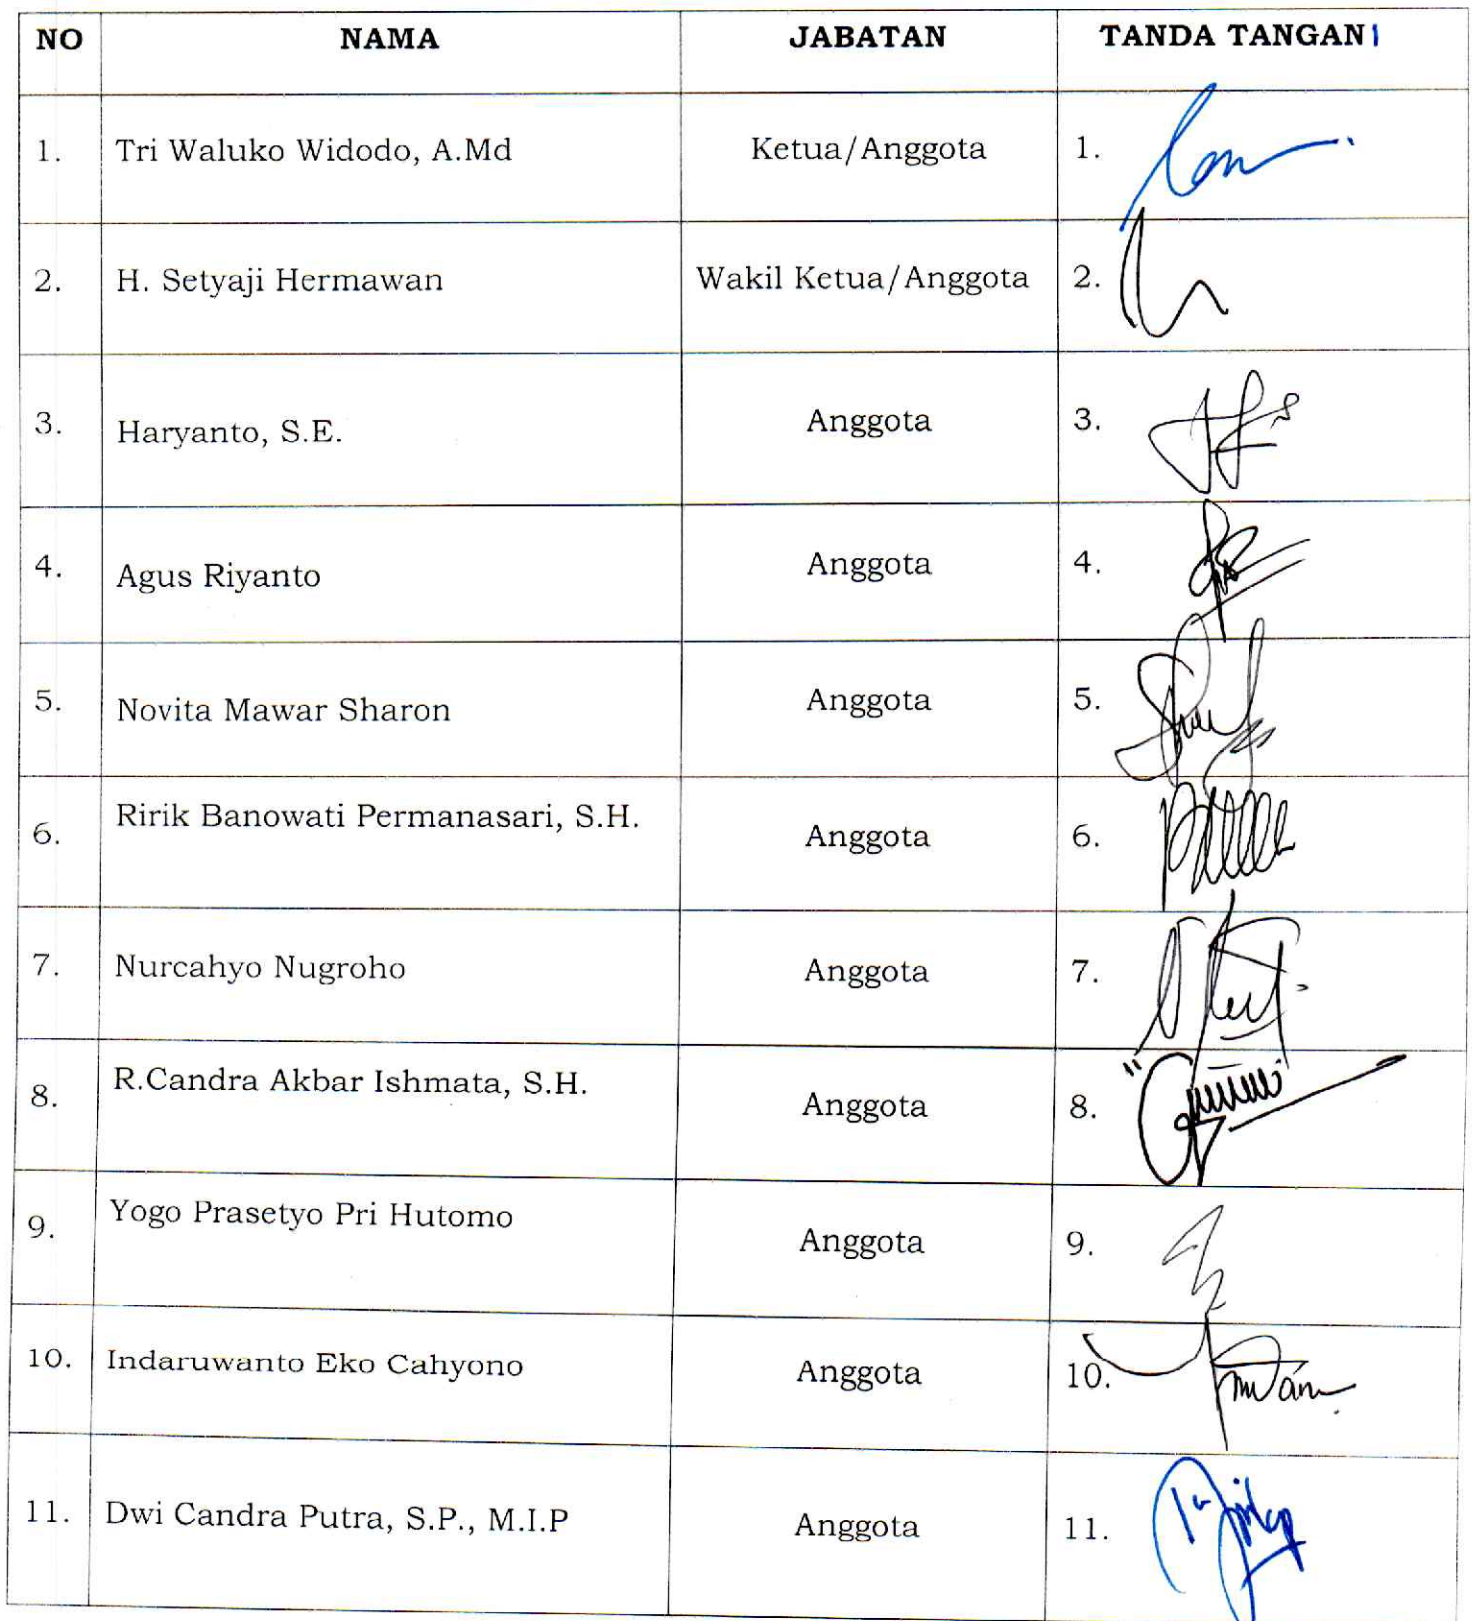 NO NAMA JABATAN TANDA TANGAN
1. Tri Waluko Widodo, A.Md Ketua/Anggota 1.
2. H. Setyaji Hermawan Wakil Ketua/Anggota 2.
3. Haryanto, S.E. Anggota 3.
4. Agus Riyanto Anggota 4.
5. Novita Mawar Sharon Anggota 5.
6. Ririk Banowati Permanasari, S.H. Anggota 6.
7. Nurcahyo Nugroho Anggota 7.
8. R.Candra Akbar Ishmata, S.H. Anggota 8.
9. Yogo Prasetyo Pri Hutomo Anggota 9.
10. Indaruwanto Eko Cahyono Anggota 10.
11. Dwi Candra Putra, S.P., M.I.P Anggota 11.